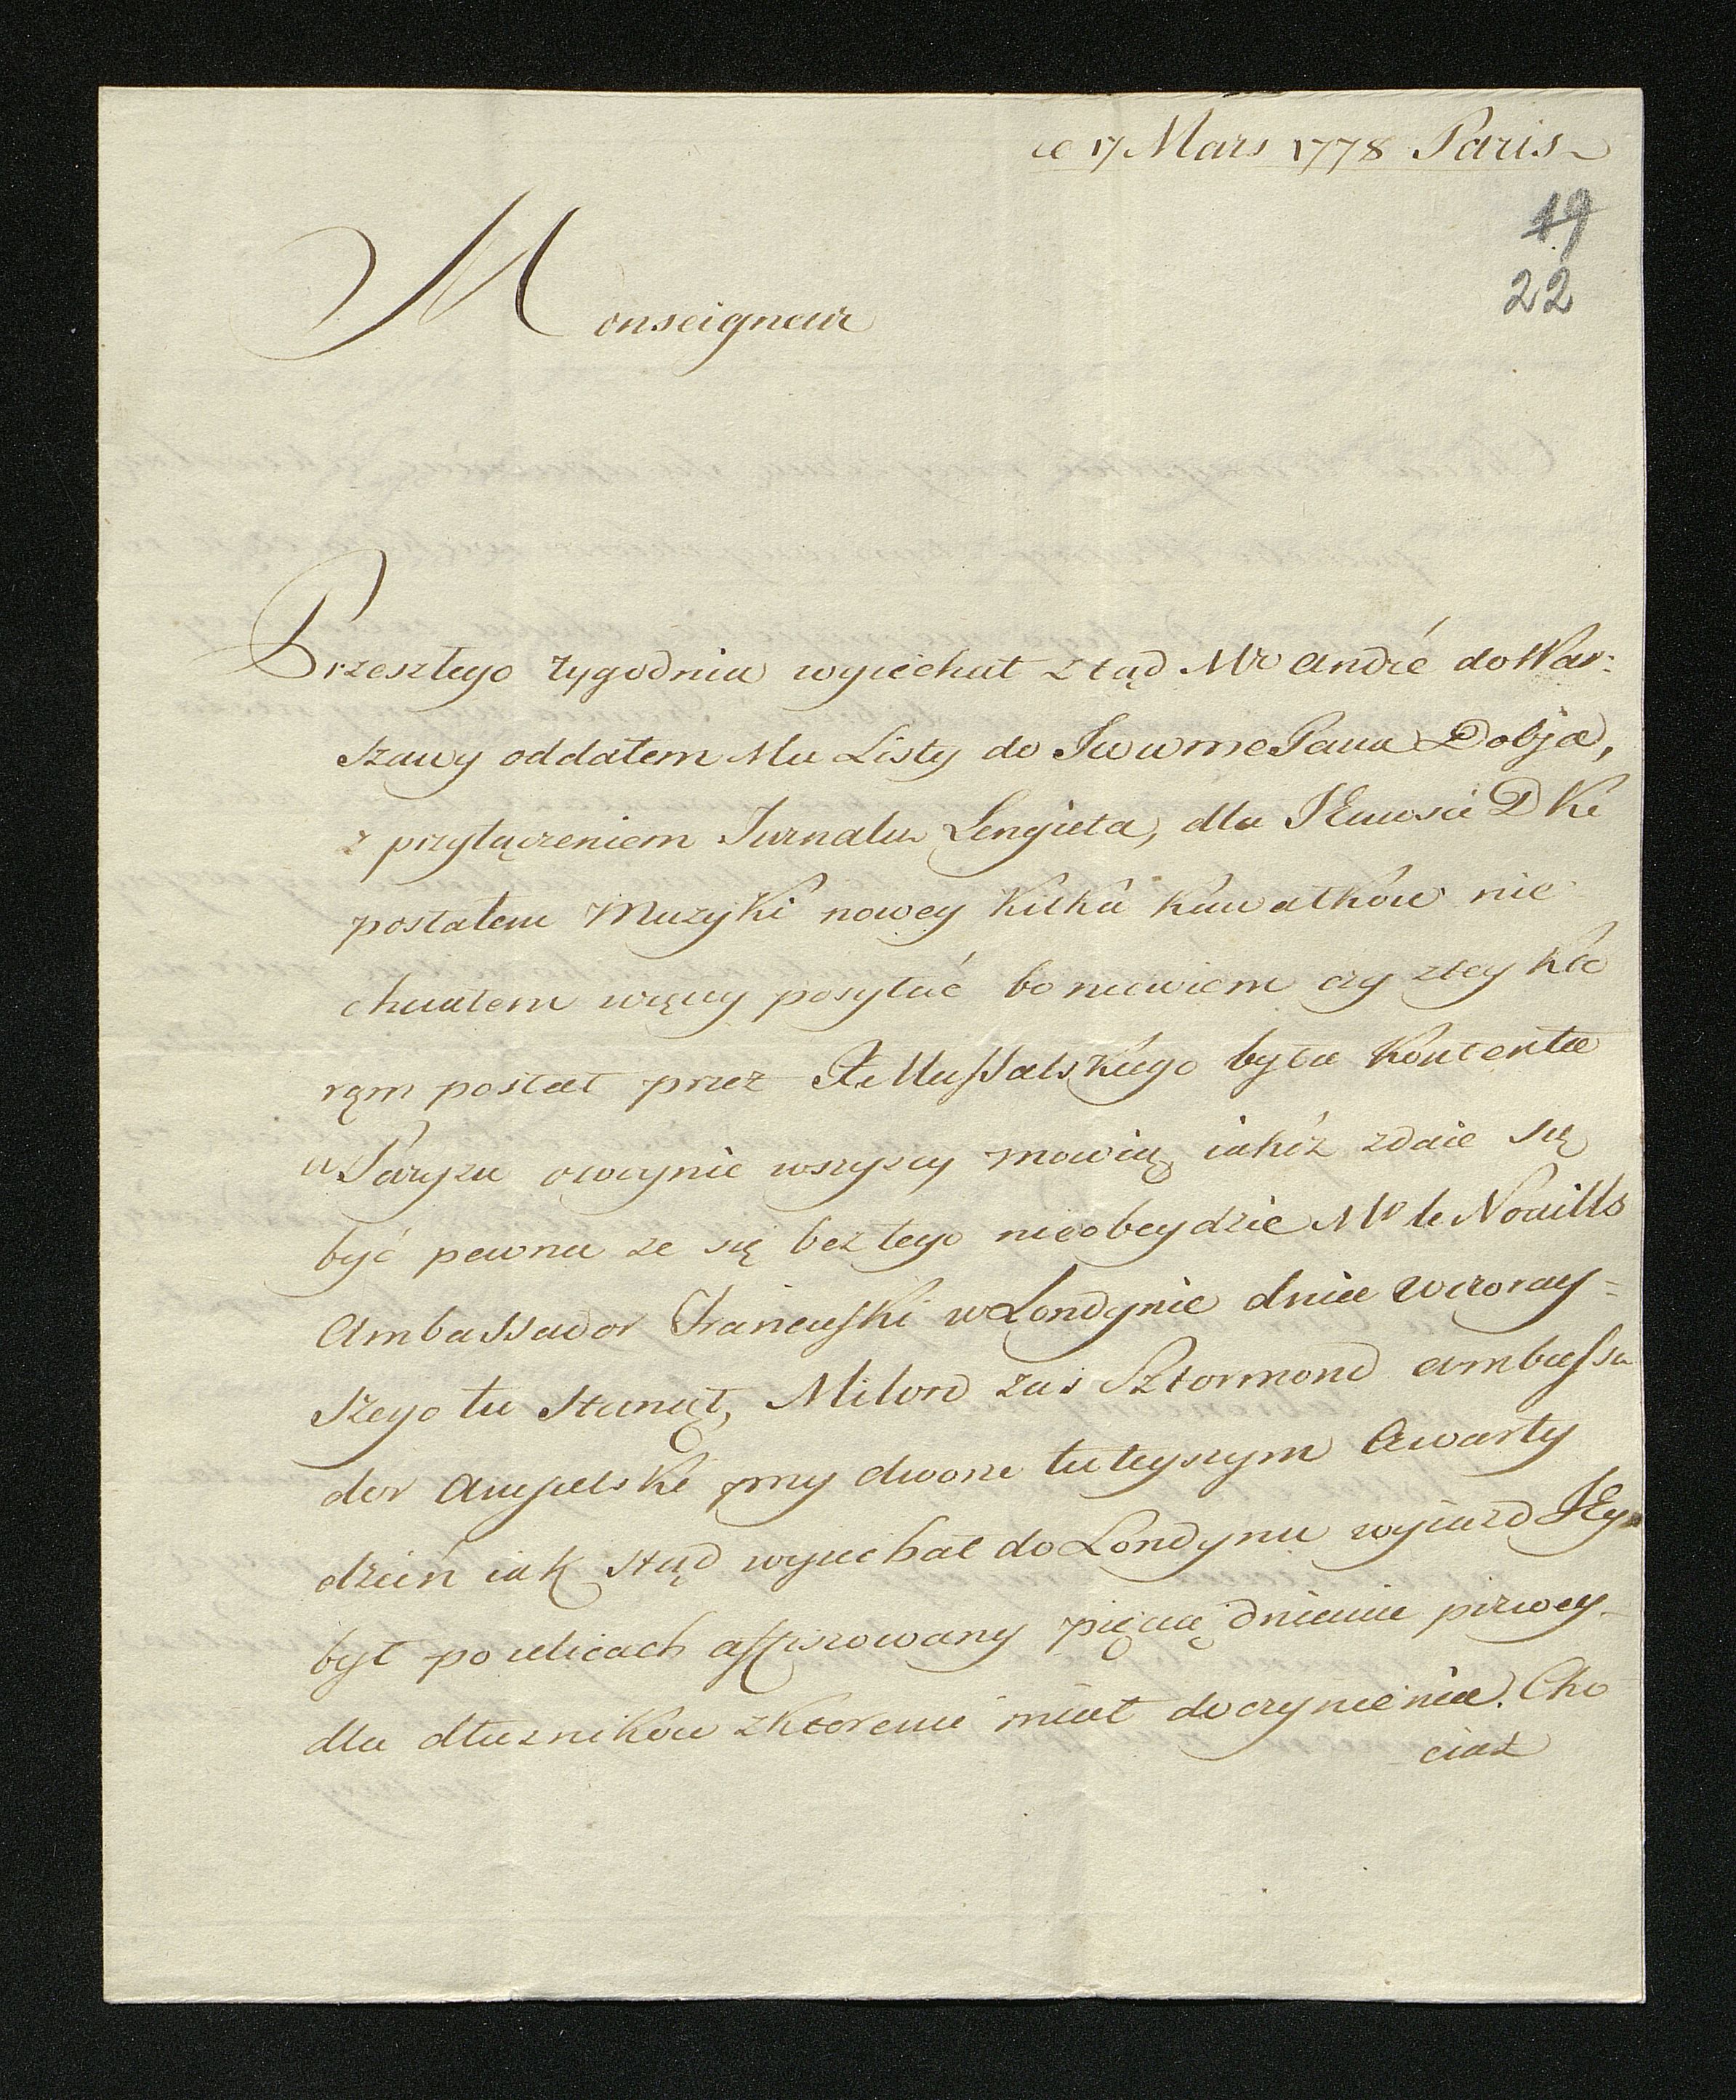 ce 17 Mars 1778 Paris
19
22
Monseigneur
Przeszłego tygodnia wyiechał ztąd Mr André do War:
szawy oddałem Mu Listy do Jwwme Pana Dobja,
z przyłączeniem Jurnalu Lengieta, dla JEmości D Ki
posłałem Muzyki nowey kilka kawałków nie
chciałem więcy posyłać bo niewiem czy ztey kto
rąm posłał przez X Massalskiego była kontenta
w Paryzu owoynie wszyscy mowią, iakóż zdaie się
być pewna ze się beztego nieobeydzie Mr le Noailles
Ambassador Francuski w Londynie dnia wczoray=
szego tu stanął, Milord zas Sztormond ambassa
dor Angielski przy dworze tuteyszym Czwarty
dzień iak stąd wyiechał do Londynu wyiazd JEgo
był po ulicach affiszowany pięcią dniami pirwey
dla dłuznikow zktoremi miał doczynienia. Cho
ciaż